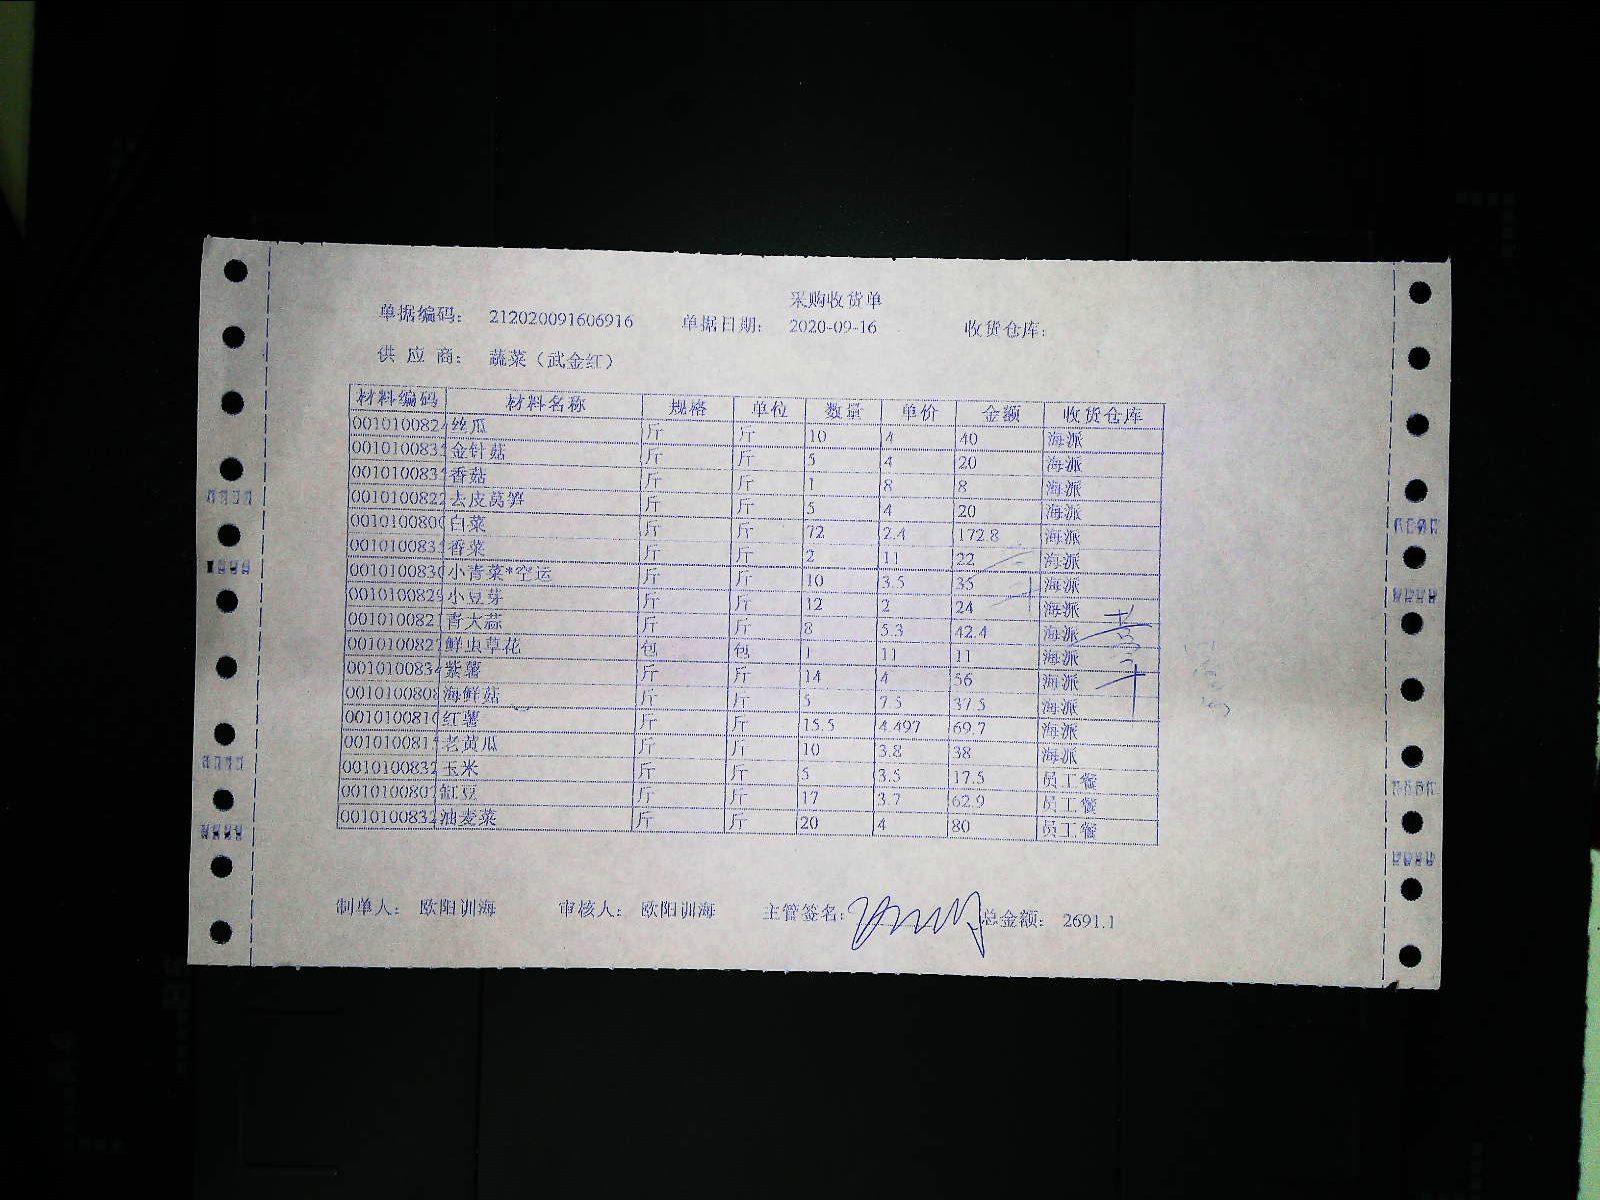 采购收货单
单据编码: 212020091606916 单据日期: 2020-09-16 收货仓库:
供 应 商: 蔬菜（武金红）
材料编码 材料名称 规格 单位 数量 单价 金额 收货仓库
001010082 丝瓜 斤 斤 10 4 40 海派
001010083 金针菇 斤 斤 5 4 20 海派
001010083 香菇 斤 斤 1 8 8 海派
001010082 去皮莴笋 斤 斤 5 4 20 海派
001010080 白菜 斤 斤 72 2.4 172.8 海派
001010083 香菜 斤 斤 2 11 22 海派
001010083 小青菜*空运 斤 斤 10 3.5 35 海派
001010082 小豆芽 斤 斤 12 2 24 海派
001010082 青大蒜 斤 斤 8 5.3 42.4 海派
001010082 鲜虫草花 包 包 1 11 11 海派
001010083 紫薯 斤 斤 14 4 56 海派
001010080 海鲜菇 斤 斤 5 7.5 37.5 海派
001010081 红薯 斤 斤 15.5 4.497 69.7 海派
001010081 老黄瓜 斤 斤 10 3.8 38 海派
001010083 玉米 斤 斤 5 3.5 17.5 员工餐
001010080 缸豆 斤 斤 17 3.7 62.9 员工餐
001010083 油麦菜 斤 斤 20 4 80 员工餐
制单人: 欧阳训海 审核人: 欧阳训海 主管签名: 总金额: 2691.1